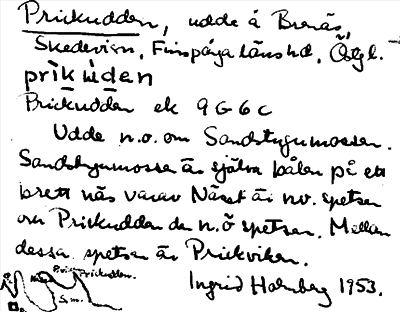 Prickudden, udde å Brenäs,
Skedevi sn, Finspånga läns hd, Östgl.
prìkùden
Prickudden ek 9G6c
Udde n.o. om Sandstugumossen.
Sandstugumosse är själva bålen på ett
brett näs varav Näset är n.v. spetsen
och Prickudden den n.ö spetsen. Mellan
dessa spetsar är Prickviken.
Ingrid Holmberg 1953.
Prickudden.
S.m.